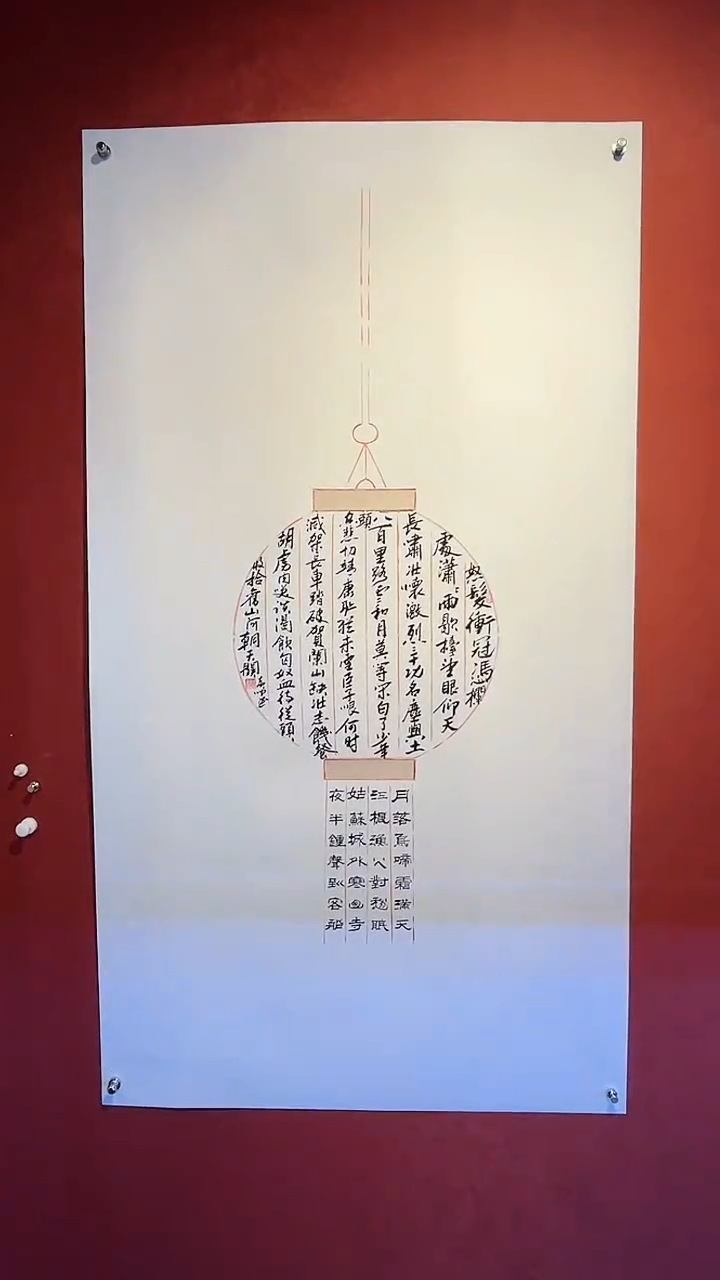 怒髮衝冠馮欄
處瀟瀟雨歇擡望眼仰天
長嘯壯懷激烈三十功名塵與土
八百里路雲和月莫等閑白了少年
頭空悲切靖康恥猶未雪臣子恨何时
滅架長車踏破賀蘭山缺壯志饑餐
胡虜肉笑談渴飲匈奴血待從頭
收拾舊山河朝天闕
月落烏啼霜滿天
江楓漁火對愁眠
姑蘇城外寒山寺
夜半鍾聲到客船